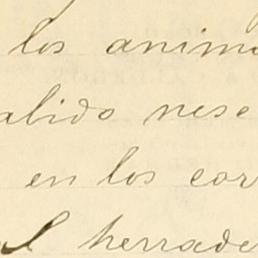 los anim
alido nese
en los cor
l herrade